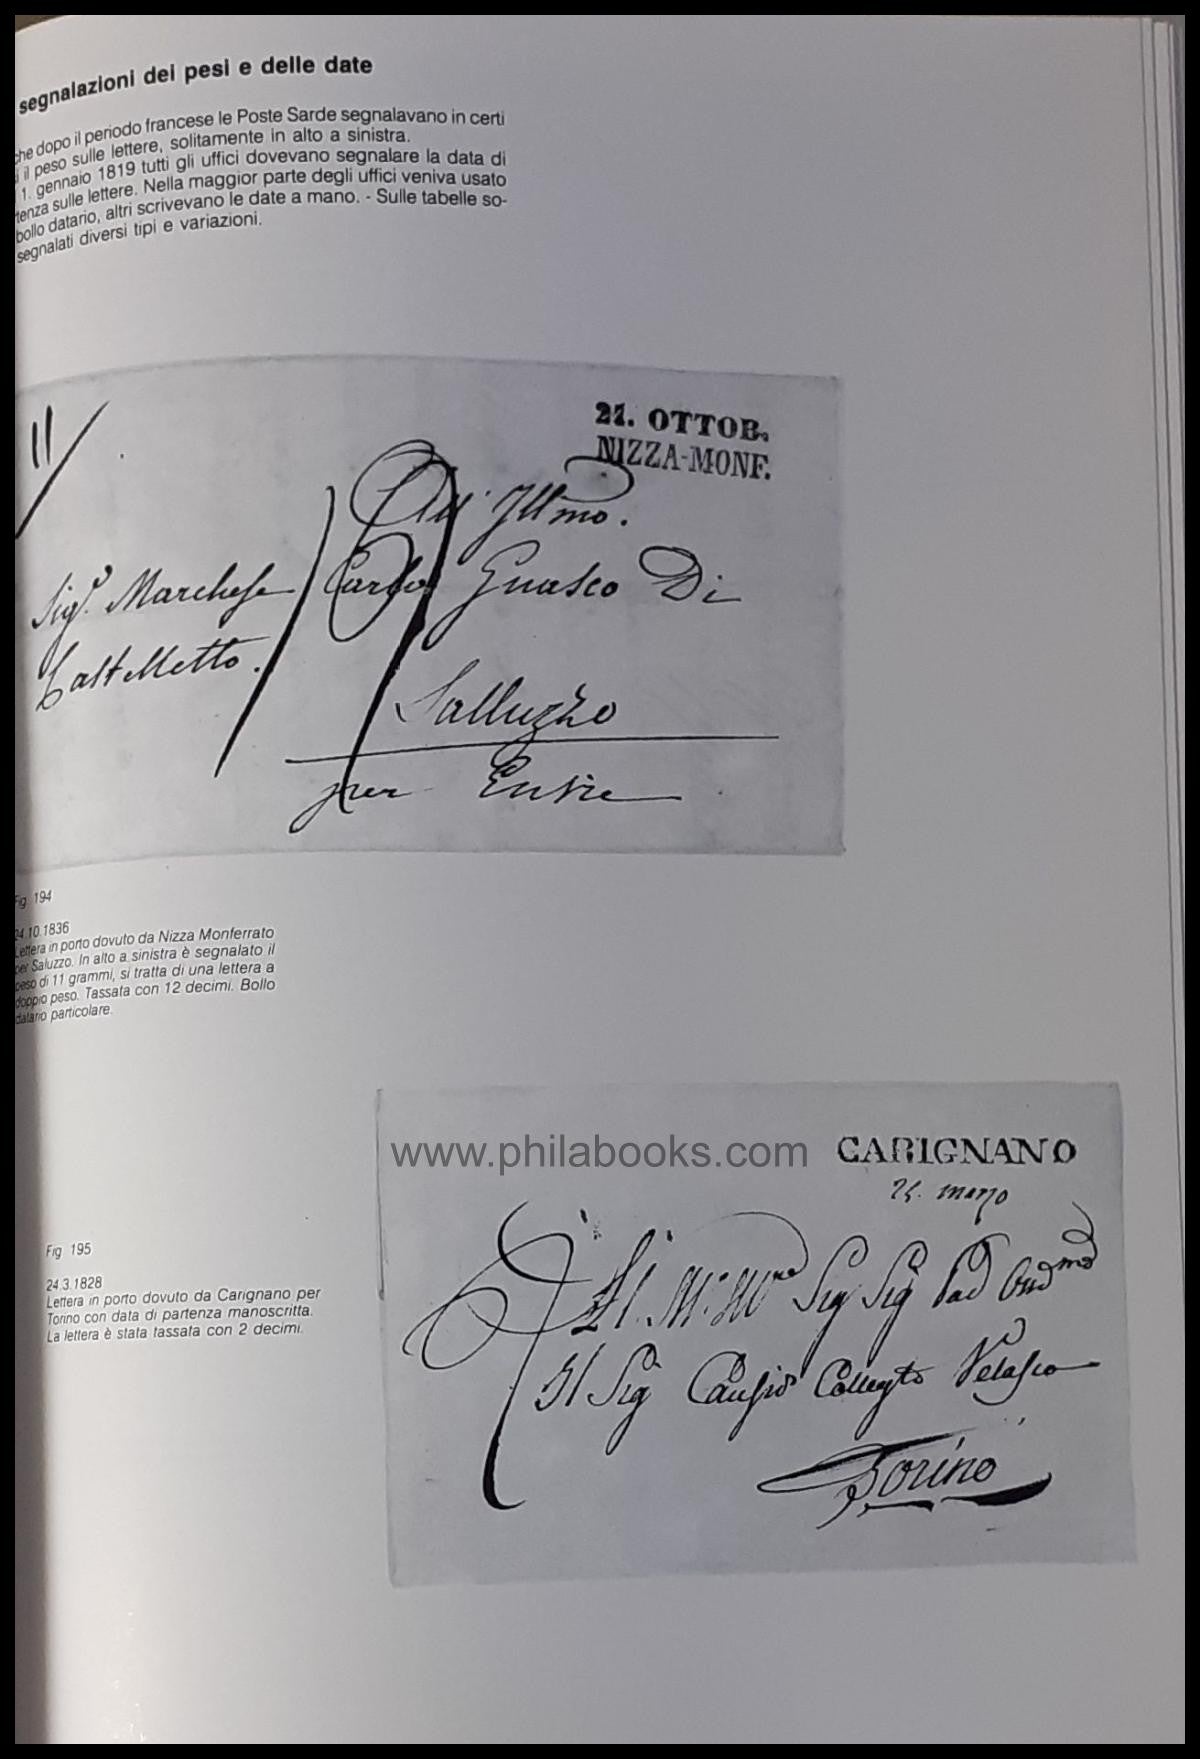 segnalazioni dei pesi e delle date
che dopo il periodo francese le Poste Sarde segnalavano in certi
il peso sulle lettere, solitamente in alto a sinistra.
1. gennaio 1819 tutti gli uffici dovevano segnalare la data di
tenza sulle lettere. Nella maggior parte degli uffici veniva usato
bollo datario, altri scrivevano le date a mano. - Sulle tabelle so-
segnalati diversi tipi e variazioni.
11/
21. OTTOB.
NIZZA-MONF.
All' Illmo.
Sig.r Marchese Carlo Guasco Di
Castelletto.
Salluzzo
per Ensie
Fig. 194
24.10.1836
Lettera in porto dovuto da Nizza Monferrato
per Saluzzo. In alto a sinistra è segnalato il
peso di 11 grammi, si tratta di una lettera a
doppio peso. Tassata con 12 decimi. Bollo
datario particolare.
www.philabooks.com
CARIGNANO
24. marzo
Sig Sig Pad
Il Sig Velasco
Torino
Fig 195
24.3.1828
Lettera in porto dovuto da Carignano per
Torino con data di partenza manoscritta.
La lettera è stata tassata con 2 decimi.